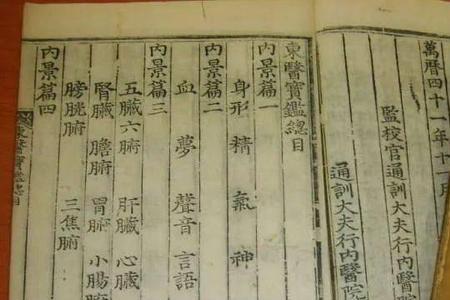 萬曆四十一年十一月
監校官通訓大夫行內醫院
通訓大夫行內醫院
東醫寶鑑總目
內景篇一
身形 精 氣 神
內景篇二
血 夢 聲音 言語
內景篇三
五臟六腑 肝臟 心臟
腎臟 膽腑 胃腑 小腸腑
膀胱腑 三焦腑
內景篇四
東醫寶鑑總目